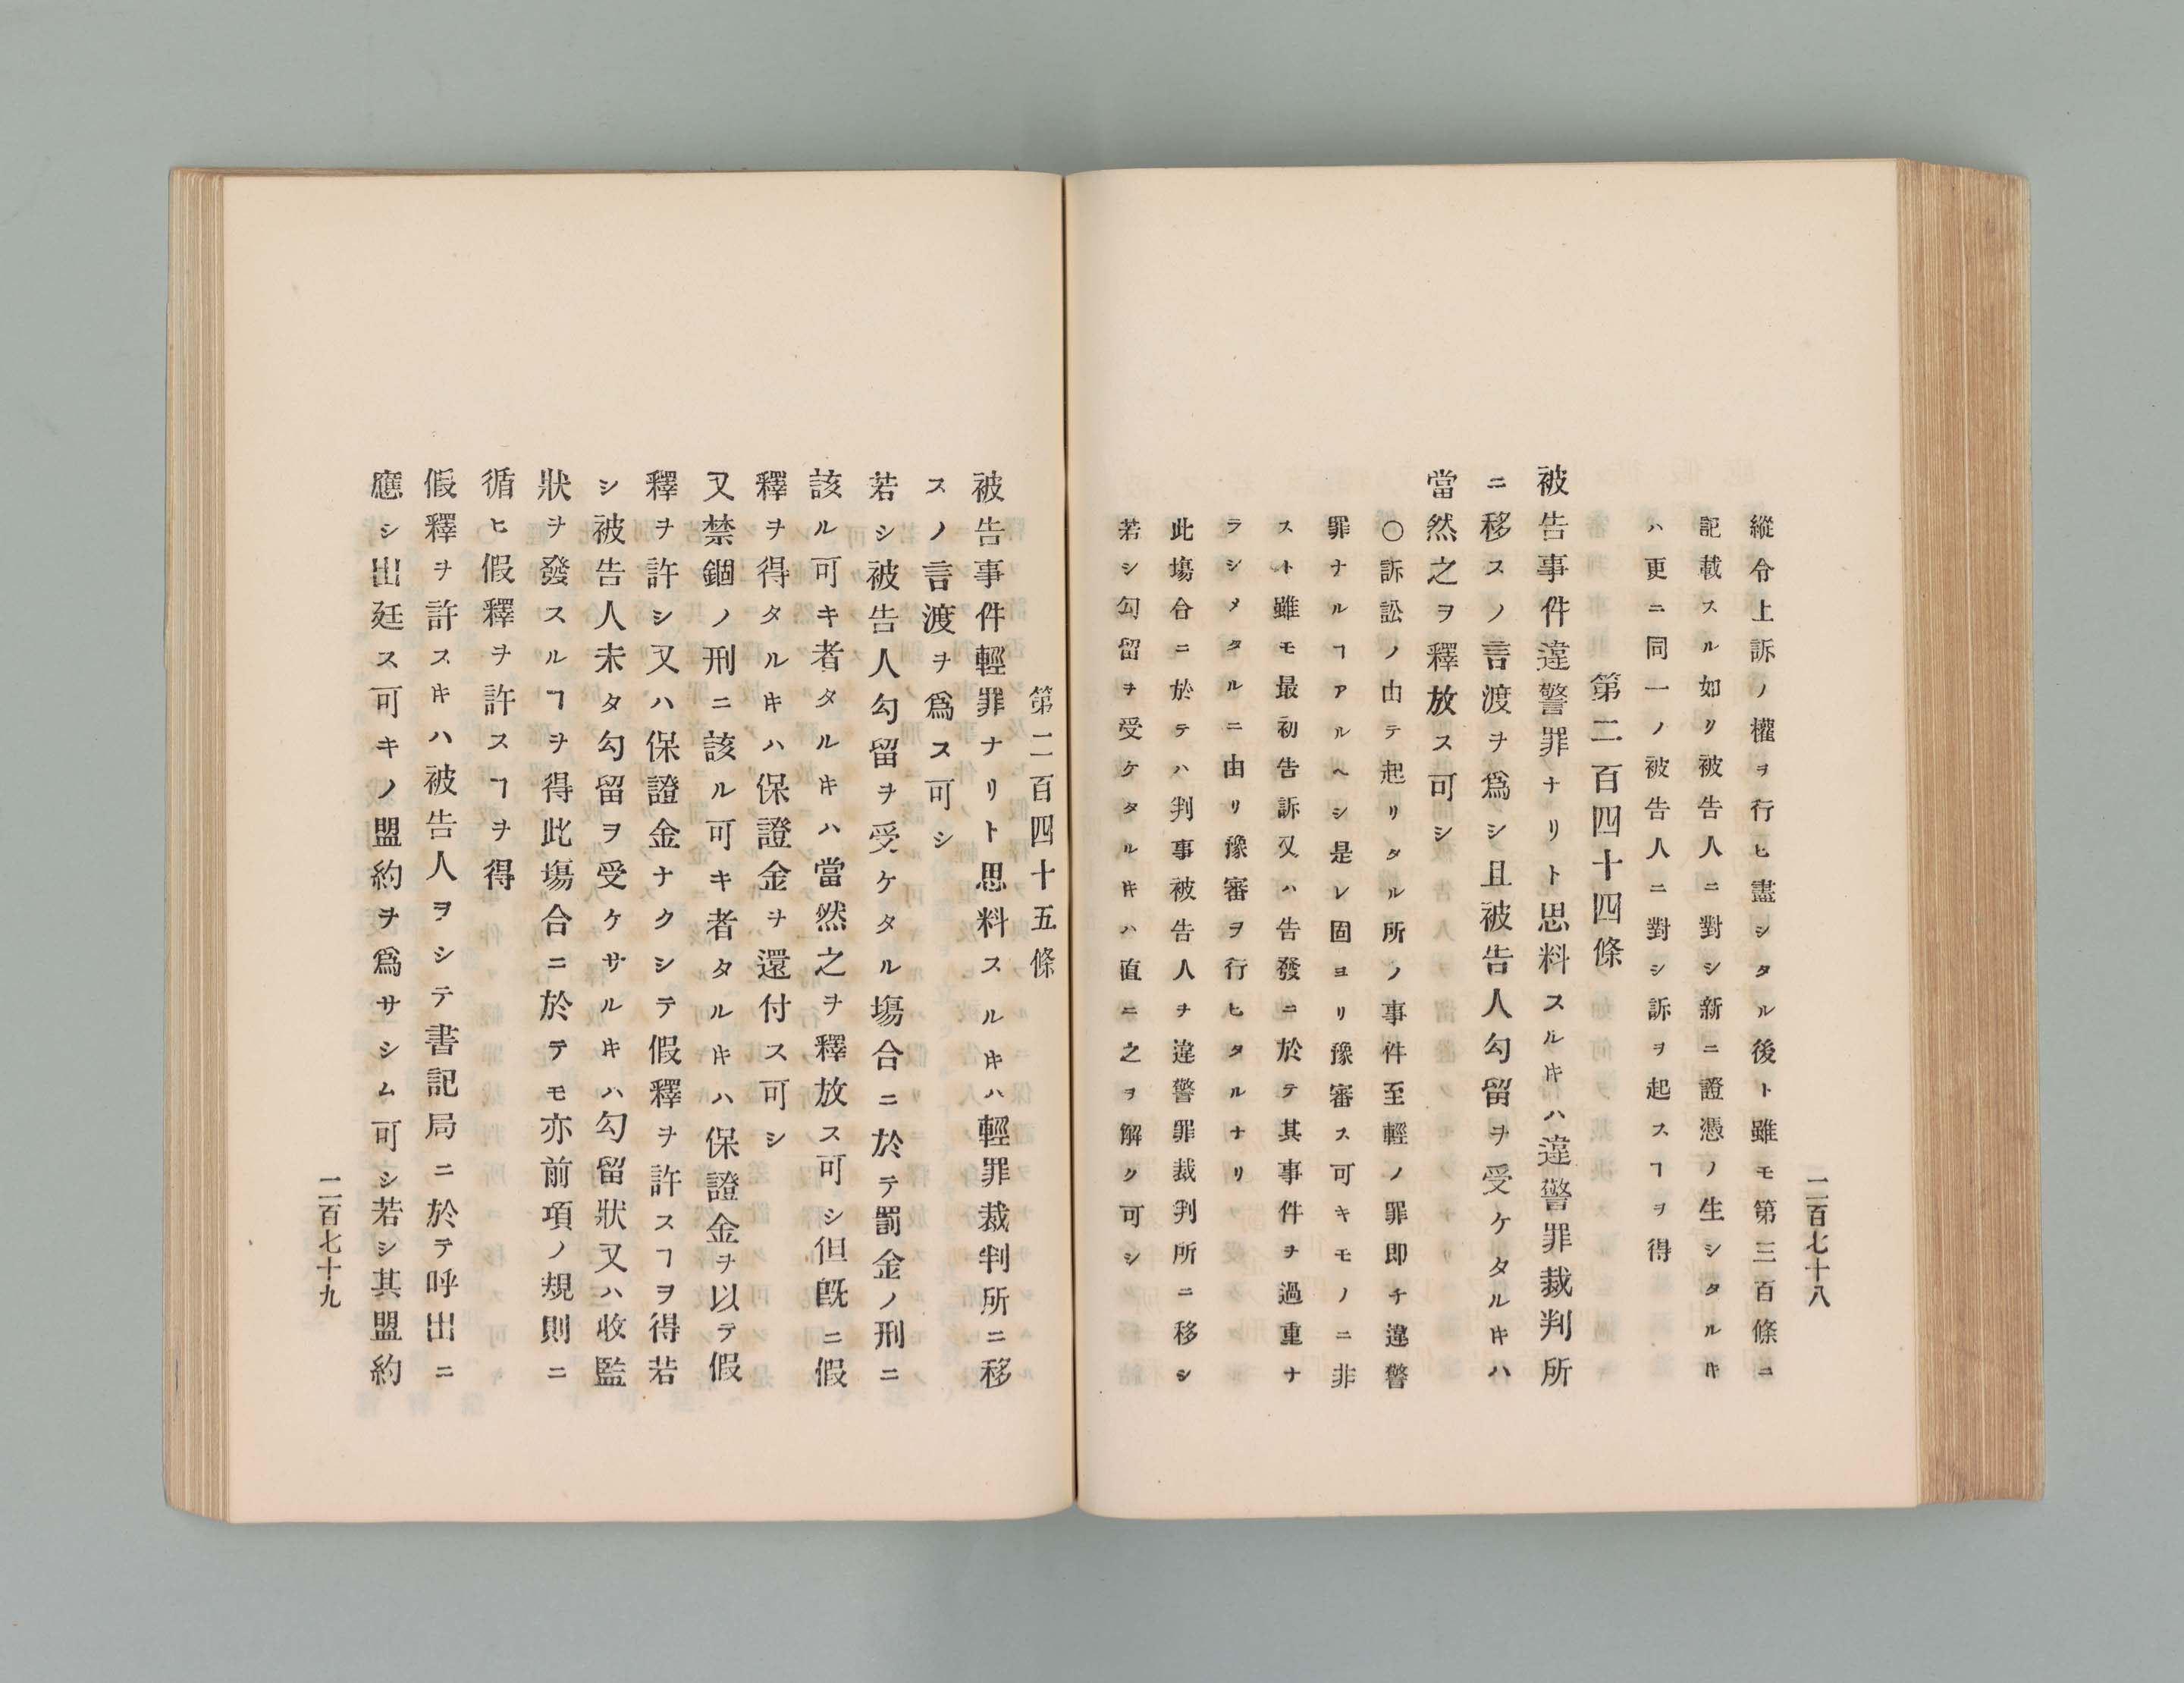 二百七十八
縱令上訴ノ權ヲ行ヒ盡シタル後ト雖モ第三百條ニ
記載スル如リ被告人ニ對シ新ニ證憑ノ生シタルキ
ハ更ニ同一ノ被告人ニ對シ訴ヲ起スヿヲ得
第二百四十四條
被告事件違警罪ナリト思料スルキハ違警罪裁判所
ニ移スノ言渡ヲ爲シ且被告人勾留ヲ受ケタルキハ
當然之ヲ釋放ス可シ
〇訴訟ノ由テ起リタル所ノ事件至輕ノ罪即チ違警
罪ナルヿアルヘシ是レ固ヨリ豫審ス可キモノニ非
スト雖モ最初告訴又ハ告發ニ於テ其事件ヲ過重ナ
ラシメタルニ由リ豫審ヲ行ヒタルナリ
此塲合ニ於テハ判事被告人ヲ違警罪裁判所ニ移シ
若シ勾留ヲ受ケタルキハ直ニ之ヲ解ク可シ
第二百四十五條
被告事件輕罪ナリト思料スルキハ輕罪裁判所ニ移
スノ言渡ヲ爲ス可シ
若シ被告人勾留ヲ受ケタル塲合ニ於テ罰金ノ刑ニ
該ル可キ者タルキハ當然之ヲ釋放ス可シ但旣ニ假
釋ヲ得タルキハ保證金ヲ還付ス可シ
又禁錮ノ刑ニ該ル可キ者タルキハ保證金ヲ以テ假
釋ヲ許シ又ハ保證金ナクシテ假釋ヲ許スヿヲ得若
シ被告人未タ勾留ヲ受ケサルキハ勾留狀又ハ收監
狀ヲ發スルヿヲ得此塲合ニ於テモ亦前項ノ規則ニ
循ヒ假釋ヲ許スヿヲ得
假釋ヲ許スキハ被告人ヲシテ書記局ニ於テ呼出ニ
應シ出廷ス可キノ盟約ヲ爲サシム可シ若シ其盟約
二百七十九